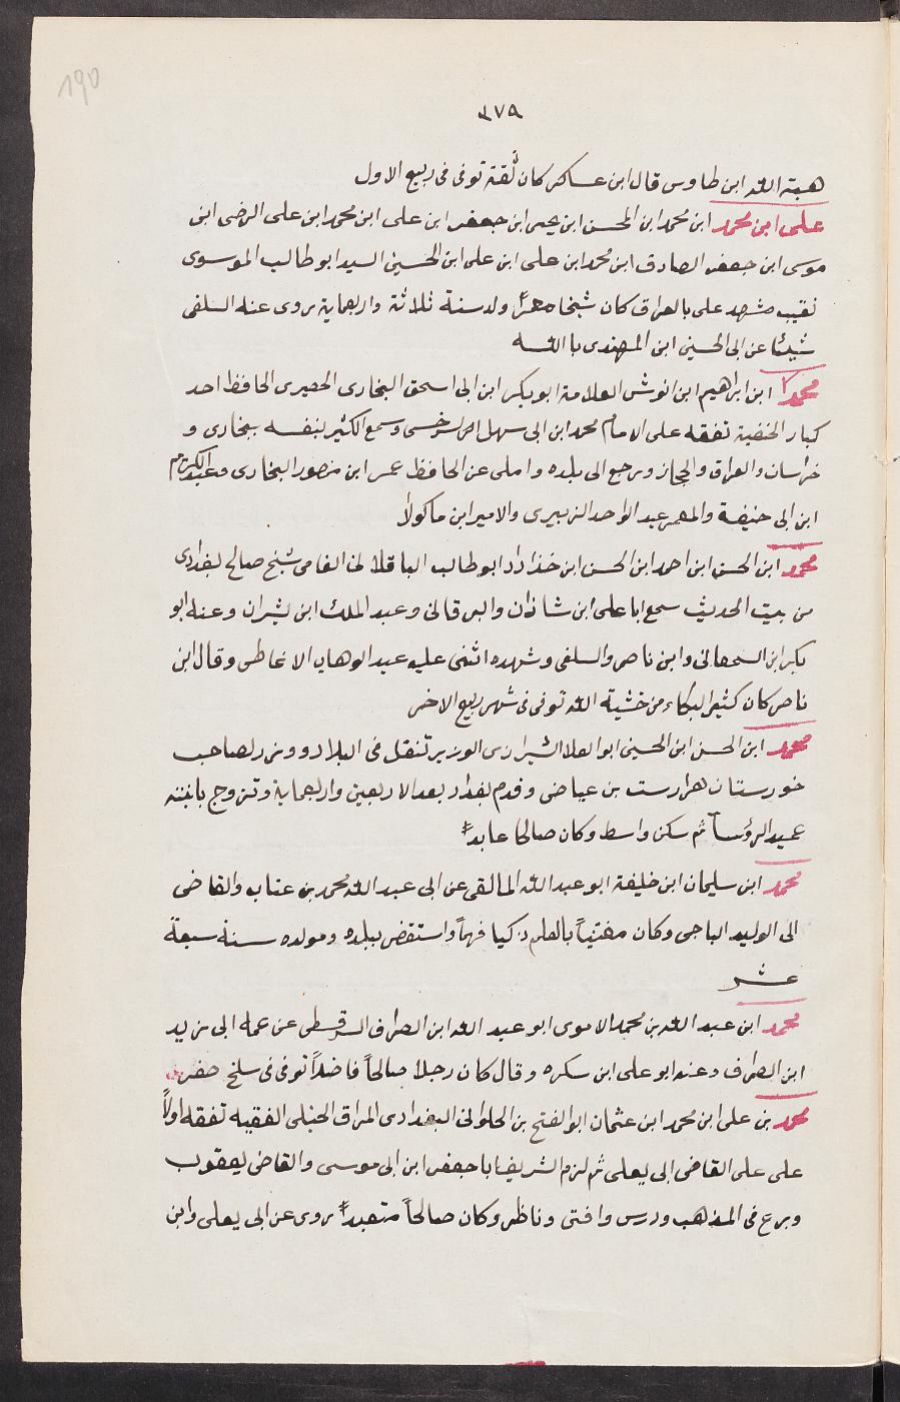 190
٣٧٩
هبة الله ابن طاوس قال ابن عساكر كان ثقة توفى فى ربيع الاول
على ابن محمد ابن محمد ابن المحسن ابن يحيى ابن جعفر ابن على ابن محمد ابن على الرضى ابن
موسى ابن جعفر الصادق ابن محمد ابن على ابن على ابن الحسين السيد ابو طالب الموسوى
نقيب مشهد على بالعراق كان شيخا معمراً ولد سنة ثلاثة واربعماية يروى عنه السلفى
شيئا عن ابى الحسين ابن المهتدى باالله
محمد ابن ابراهيم ابن انوش العلامة ابو بكر ابن ابى اسحق البخارى الحصيرى الحافظ احد
كبار الحنفية تفقه على الامام محمد ابن ابى سهل السرخسى وسمع الكثير بنفسه ببخارى و
خراسان والعراق والحجاز ورجع الى بلده واملى عن الحافظ عمر ابن منصور البخارى وعبد الكريم
ابن ابى حنيفة والمعمر عبد الواحد الزبيرى والامير ابن ماكولا
محمد ابن الحسن ابن احمد ابن الحسن ابن خذاداد ابو طالب الباقلانى الفامى شيخ صالح بغدادى
من بيت الحديث سمع ابا على ابن شاذان والبرقانى وعبد الملك ابن بشران وعنه ابو
بكر ابن السمعانى وابن ناصر والسلفى وشهده اثنى عليه عبد الوهاب الانماطى وقال ابن
ناصر كان كثير البكاء من خشية الله توفى فى شهر ربيع الاخر
محمد ابن الحسن ابن الحسين ابو العلا الشيرازى الوزير تنقل فى البلاد ووزر لصاحب
خورستان هزارست بن عياض وقدم بغداد بعد الاربعين واربعماية وتزوج بابنته
عميد الرؤساء ثم سكن واسط وكان صالحا عابداً
محمد ابن سليمان ابن خليفة ابو عبد الله المالقى عن ابى عبد الله محمد بن عتاب والقاضى
ابى الوليد الباجى وكان مفتياً بالعلم ذكيا فهماً واستقضى ببلده ومولده سنة سبعة
عشر
محمد ابن عبد الله بن محمد الاموى ابو عبد الله ابن الصراف السرقسطى عن عمه ابى زيد
ابن الصراف وعنه ابو على ابن سكره وقال كان رجلا صالحاً فاضلاً توفى فى سلخ صفر
محمد بن على ابن محمد ابن عثمان ابو الفتح بن الحلوانى البغدادى المراق الحنبلى الفقيه تفقه اولاً
على على القاضى ابى يعلى ثم لزم الشريف ابا جعفر ابن ابى موسى والقاضى يعقوب
وبرع فى المذهب ودرس وافتى وناظر وكان صالحاً متعبداً يروى عن ابى يعلى وابن